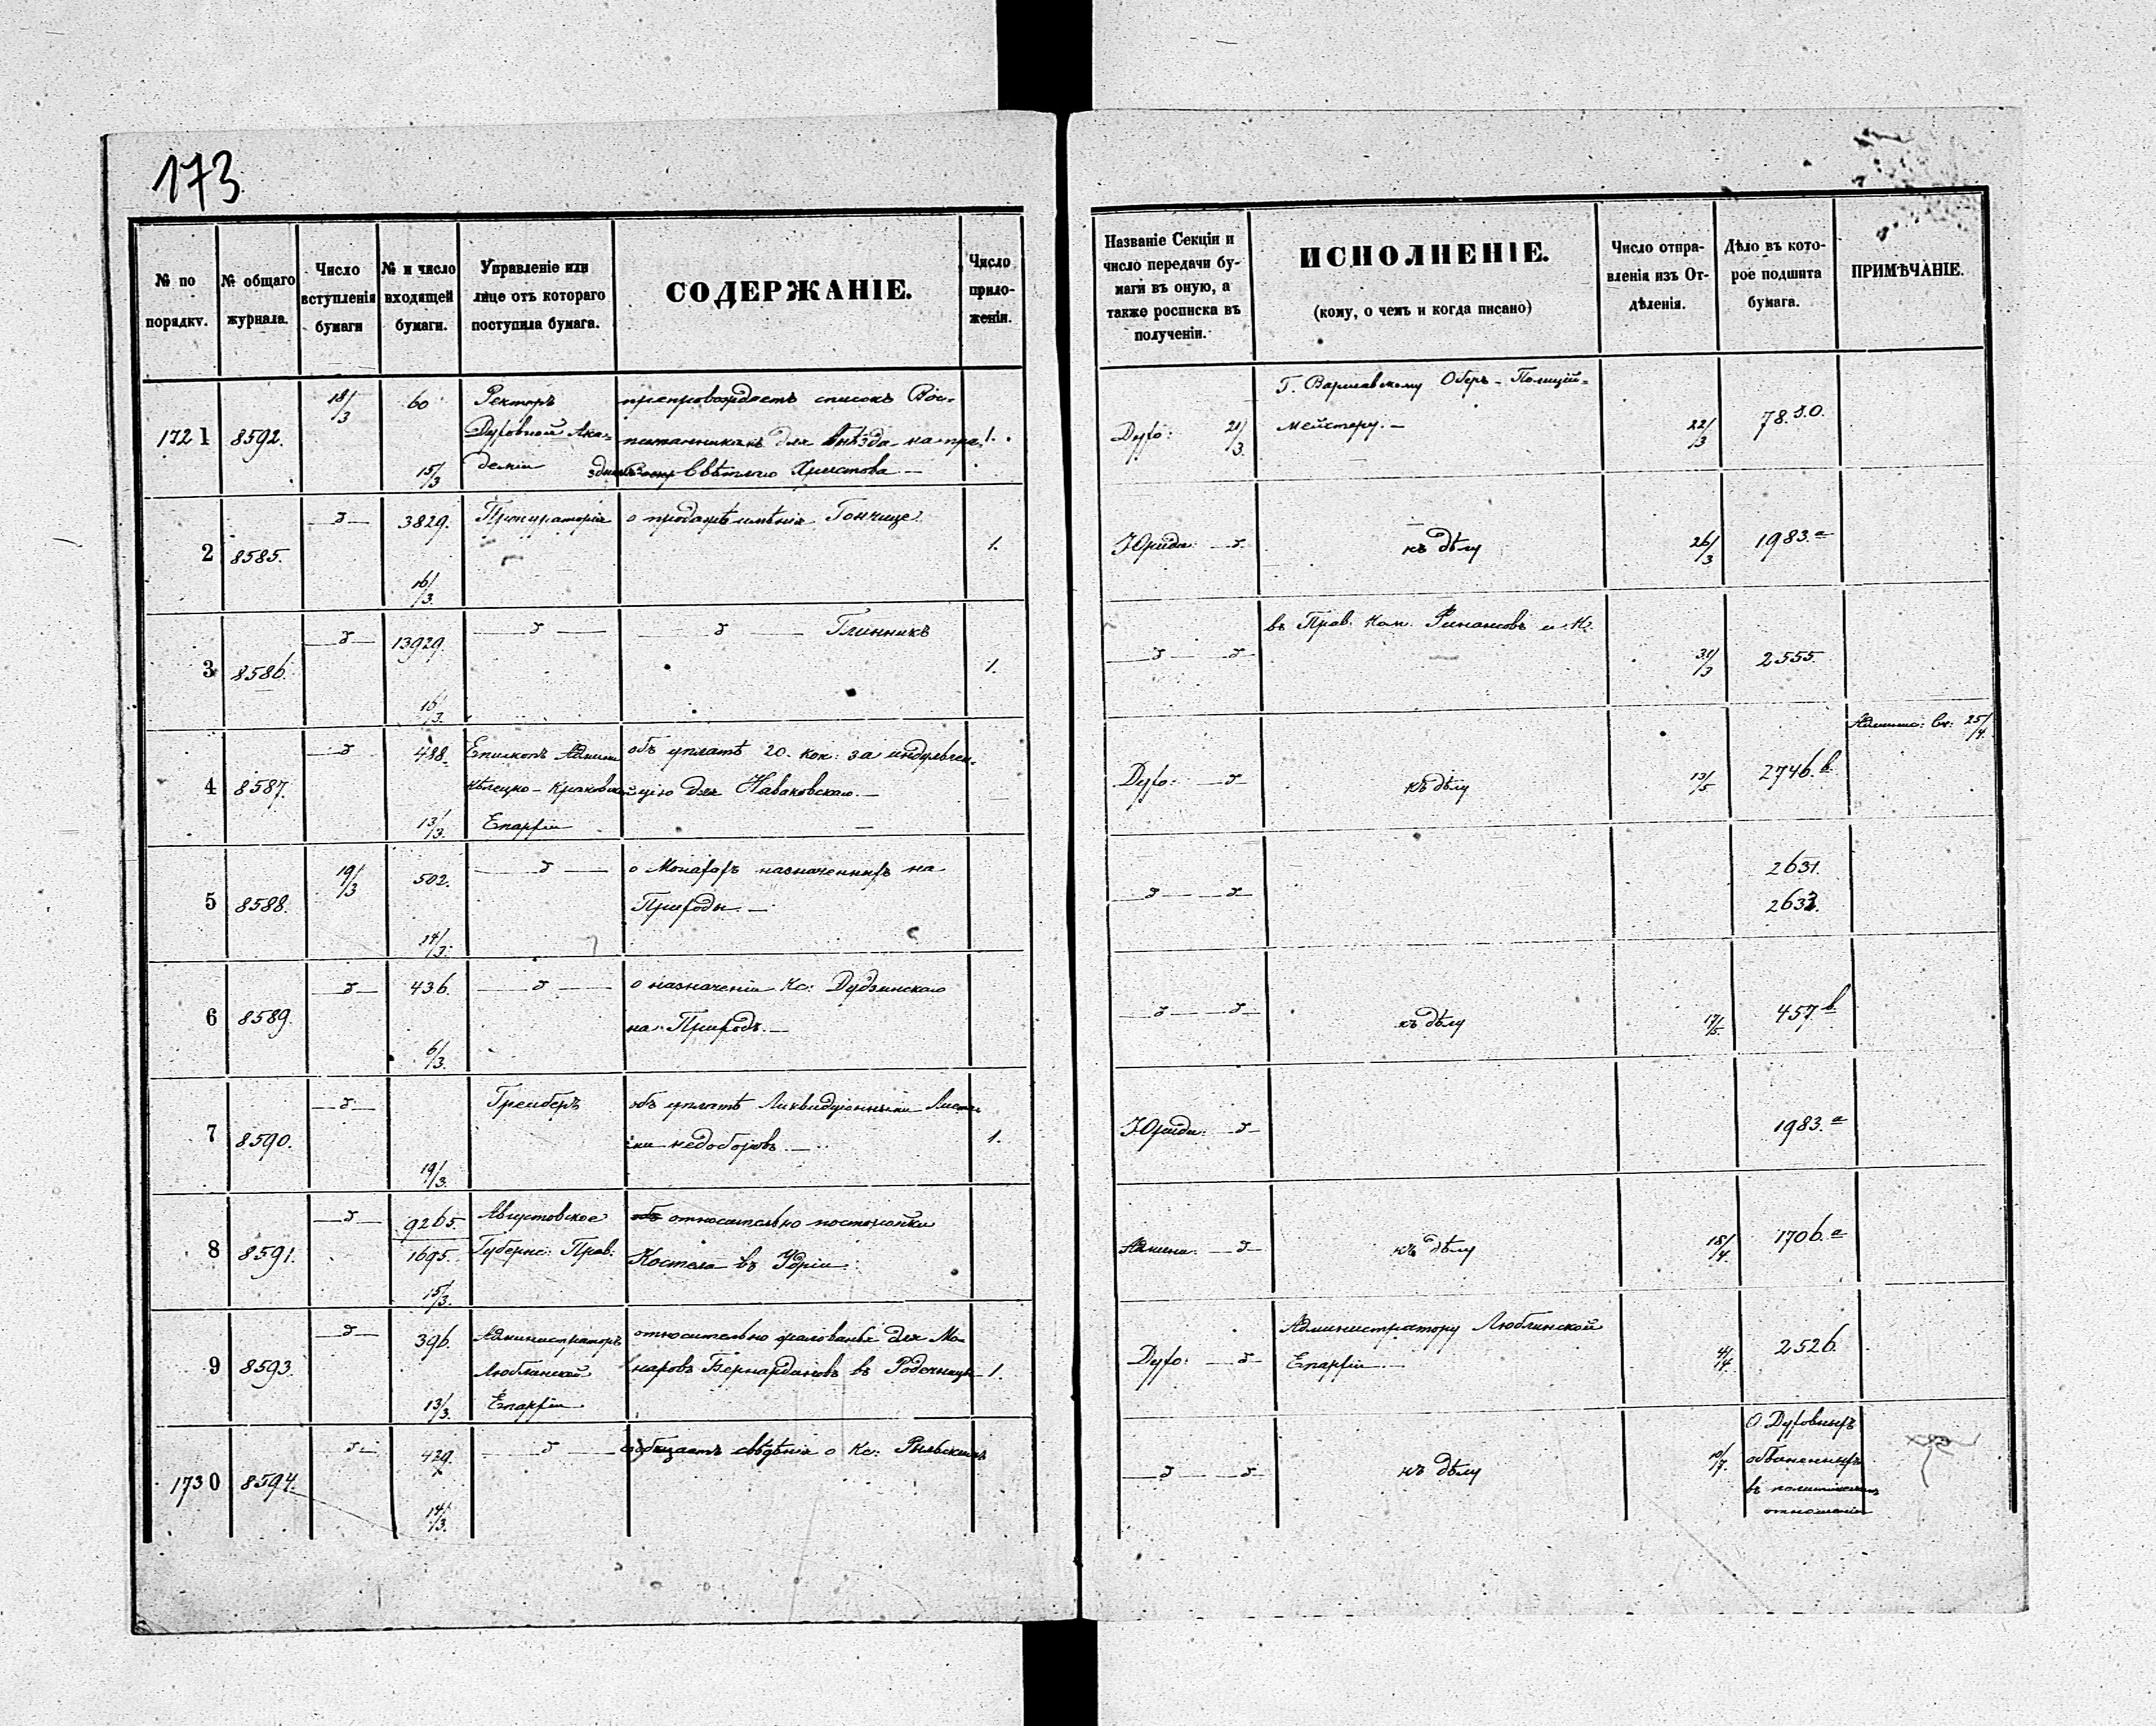 173
№ по порядку.
№ общаго журнала.
Число вступленія бумаги
№ и число входящей бумаги.
Управленіе или лице отъ котораго поступила бумага.
СОДЕРЖАНІЕ.
Число приложеній.
Названіе Секціи и число передачи бумаги въ оную, а также росписка въ полученіи.
ИСПОЛНЕНІЕ.
(кому, о чемъ и когда писано)
Число отправленія изъ Отдѣленія.
Дѣло въ которое подшита бумага.
ПРИМѢЧАНІЕ.
1721 8592. 18/3 60 15/3
Ректоръ
Духовной Ака-
деміи
препровождаетъ списокъ Вос-
питанниковъ для выѣзда на пра-
здникъ Свѣтлаго Христова. —
1.
Духо: 21/3.
Г. Варшавскому Оберъ-Полицій-
мейстеру. —
22/3
2 8585. —д— 3829. 16/3.
Прокураторія
о продажѣ имѣнія Гончице.
1.
Юриди. —д.
къ дѣлу
26/3 1983.а
3 8586. —д— 13929. 16/3.
—д— —д— Глинникъ
1.
—д— —д—
въ Прав. Ком. Финансовъ и К.
31/3 2555.
4 8587. —д 488. 13/3.
Епископъ Админи
Кѣлецко-Краковской
Епархіи
объ уплатѣ 20. коп: за индульген-
цію для Наваковскаго. —
Духо: —д—
къ дѣлу
13/5 2746.в
Админис: Се: 25/4.
5 8588. 19/3 502. 14/3.
—д—
о Монахахъ назначенныхъ на
Приходы. —
—д— —д—
2631.
2632.
6 8589. —д— 436. 6/3.
—д—
о назначеніи Кс: Дудзинскаго
на Приходъ. —
—д— —д—
къ дѣлу
17/5. 457 в
7 8590. —д— 19/3.
Грейберъ
объ уплатѣ Ликвидціонными Листа-
ми недоборовъ. —
1.
Юриди: д—
1983.а
8 8591. —д— 9265. 1695. 15/3.
Августовское
Губернс: Прав:
относительно постройки
Костела въ Удріи.
Админи. —д—
къ дѣлу
18/4. 1706.а
9 8593. —д— 396. 13/3.
Администраторъ
Люблинской
Епархіи
относительно жалованья для Мо-
наховъ Бернардиновъ въ Радечницѣ
1.
Духо: —д—
Администратору Люблинской
Епархіи. —
4/4. 2526.
1730 8594. д— 429. 14/3.
—д—
сообщаетъ свѣдѣнія о Кс: Рыльскихъ
—д— —д—
къ дѣлу
О Духовныхъ
обвиненныхъ
въ политическомъ
отношеніи